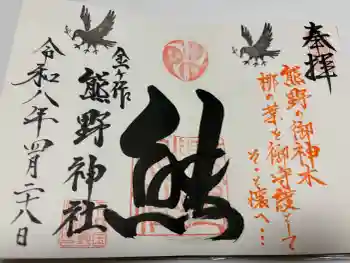 奉拝
熊野の御神木
梛の葉と御守護として
そっと懐へ…
熊
金ヶ作
熊野神社
令和八年四月二十八日